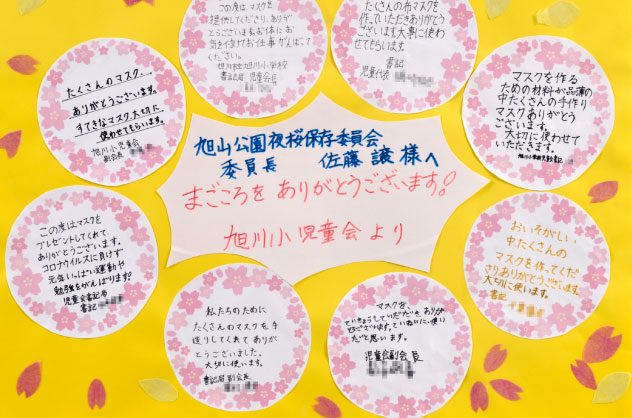 この度は、マスクを
提供してくださり、ありがと
うございます。お体にお
気を付けてお仕事がんばって
ください。
旭川市立旭川小学校
書記局 児童会長
たくさんの布マスクを
作っていただきありがとう
ございます。大事に使わ
せてもらいます。
書記
児童代表
たくさんのマスク、
ありがとうございます。
すてきなマスク大切に
使わせてもらいます。
旭川小児童会
副会長
マスクを作る
ための材料が品薄の
中たくさんの手作り
マスクありがとう
ございます。
大切に使わせて
いただきます。
旭山公園夜桜保存委員会
委員長 佐藤 譲 様へ
まごころを ありがとうございます!
旭川小児童会より
この度はマスクを
プレゼントしてくれて、
ありがとうございます。
コロナウイルスに負けず
元気いっぱい運動や
勉強をがんばります!
児童会書記局
書記
おいそがしい
中たくさんの
マスクを作ってくだ
さりありがとうございます。
大切に使います。
書記
私たちのために
たくさんのマスクを手
作りしてくれてありが
とうございました。
大切に使います。
書記局 副会長
マスクを、
ていきょうしていただき、ありがと
うございます。ていねいに使い
たいと思います。
児童会副会長